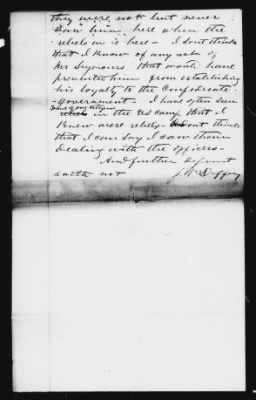 they were not but never
saw him here when the
rebels were here - I dont think
that I know of any acts of
Mr Symons that would have
prevented him from establishing
his loyalty to the Confederate
Government - I have often seen
in the US Camp that I
Knew were rebels - dont think
that I can say I saw them
dealing with the officers -
And further deponent
saith not J W Duffey